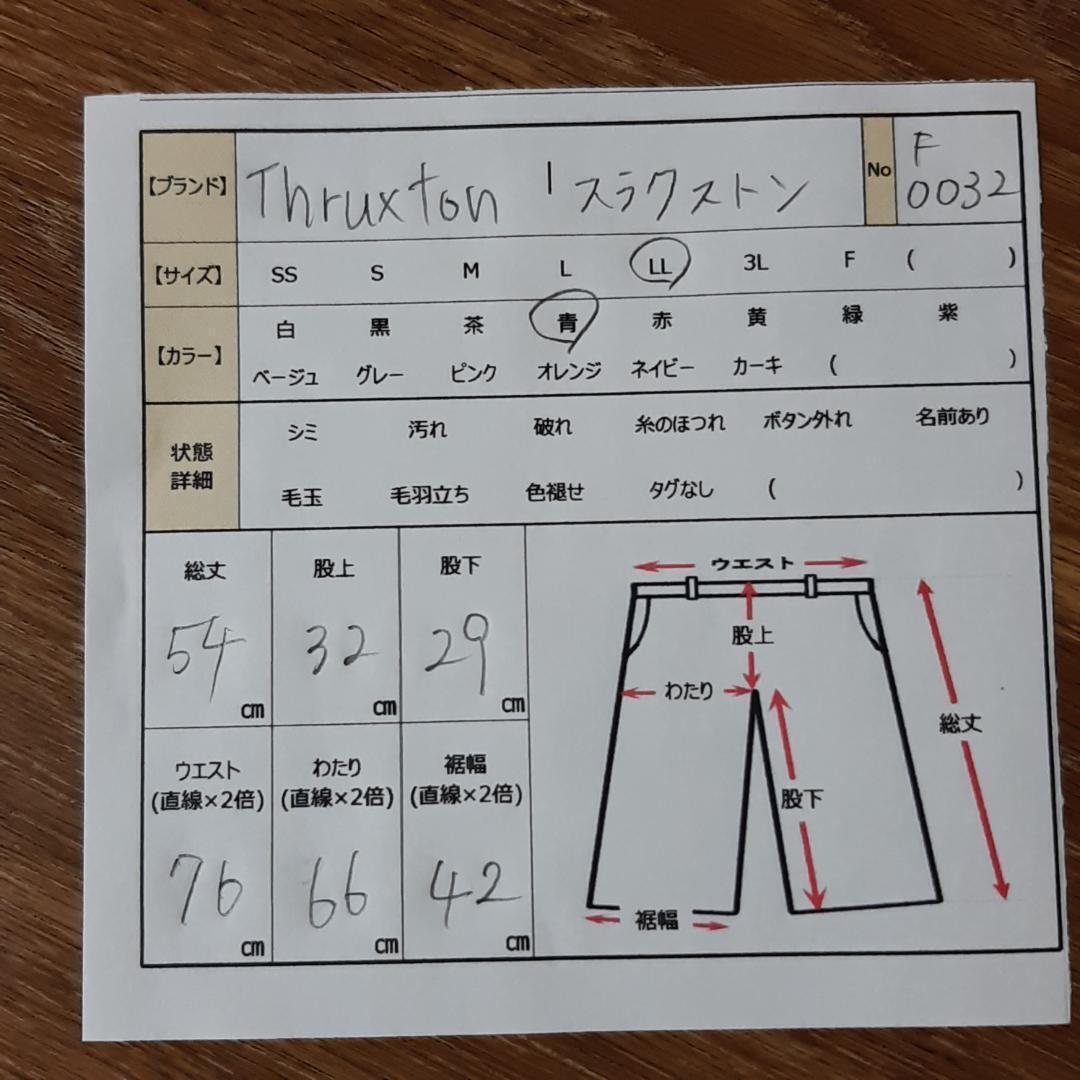 【ブランド】 Thruxton | スラクストン No F 0032
【サイズ】 SS S M L LL 3L F ( )
【カラー】 白 黒 茶 青 赤 黄 緑 紫
ベージュ グレー ピンク オレンジ ネイビー カーキ ( )
状態詳細 シミ 汚れ 破れ 糸のほつれ ボタン外れ 名前あり
毛玉 毛羽立ち 色褪せ タグなし ( )
総丈 股上 股下
54 cm 32 cm 29 cm
ウエスト わたり 裾幅
(直線×2倍) (直線×2倍) (直線×2倍)
76 cm 66 cm 42 cm
ウエスト
股上
わたり
総丈
股下
裾幅